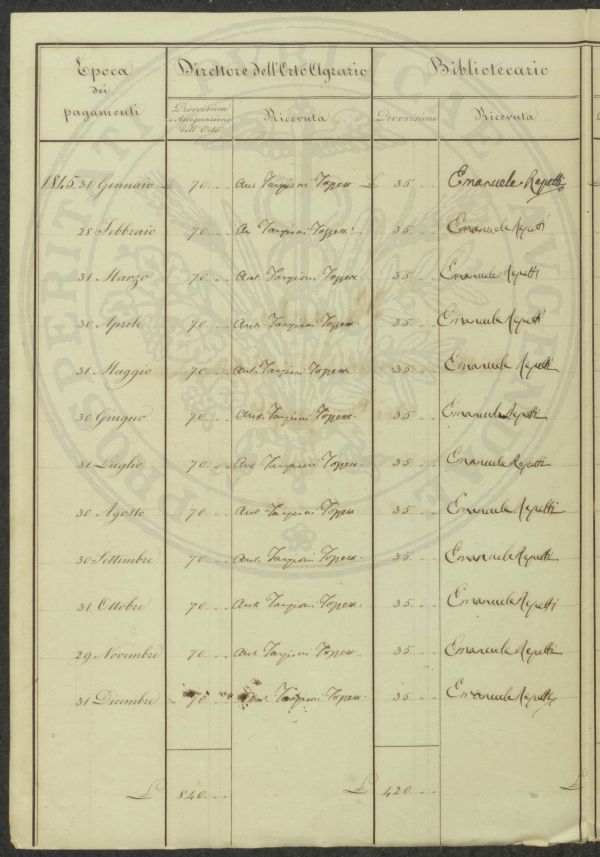 Epoca dei pagamenti | Direttore dell'Orto Agrario | Bibliotecario
Provvisione e Assegnazione dell'Orto | Ricevuta | Provvisione | Ricevuta
1845. 31 Gennaio £ 70. .. Ant Targioni Tozzett £ 35 .. Emanuele Repetti
28 Febbraio 70. .. An Targioni Tozzett 35 .. Emanuele Repetti
31 Marzo 70. .. Ant Targioni Tozzett. 35 .. Emanuele Repetti
30 Aprile 70. .. Ant. Targioni Tozzett. 35 .. Emanuele Repetti
31 Maggio 70. .. Ant. Targioni Tozzett 35 .. Emanuele Repetti
30 Giugno 70. .. Ant. Targioni Tozzett. 35 .. Emanuele Repetti
31 Luglio 70. .. Ant Targioni Tozzett. 35 .. Emanuele Repetti
30 Agosto 70. .. Ant Targioni Tozzett 35 .. Emanuele Repetti
30 Settembre 70. .. Ant. Targioni Tozzett. 35 .. Emanuele Repetti
31 Ottobre 70. .. Ant Targioni Tozzett. 35 .. Emanuele Repetti
29 Novembre 70. .. Ant Targioni Tozzett 35 .. Emanuele Repetti
31 Dicembre 70. .. Ant Targioni Tozzett. 35 .. Emanuele Repetti
£ 840. .. £ 420. ..